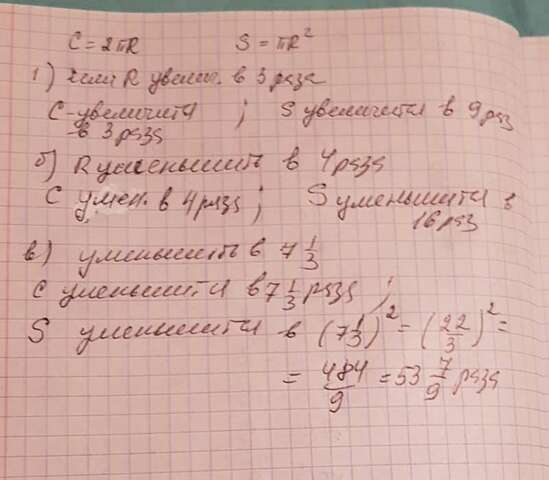 C = 2πR S = πR²
1) если R увелич. в 3 раза
C - увеличится ; S увеличится в 9 раз
в 3 раза
б) R уменьшить в 4 раза
C умен. в 4 раза ; S уменьшится в
16 раз
в) уменьшить в 7 1/3
C уменьшится в 7 1/3 раза ;
S уменьшится в (7 1/3)² = (22/3)² =
= 484/9 = 53 7/9 раза